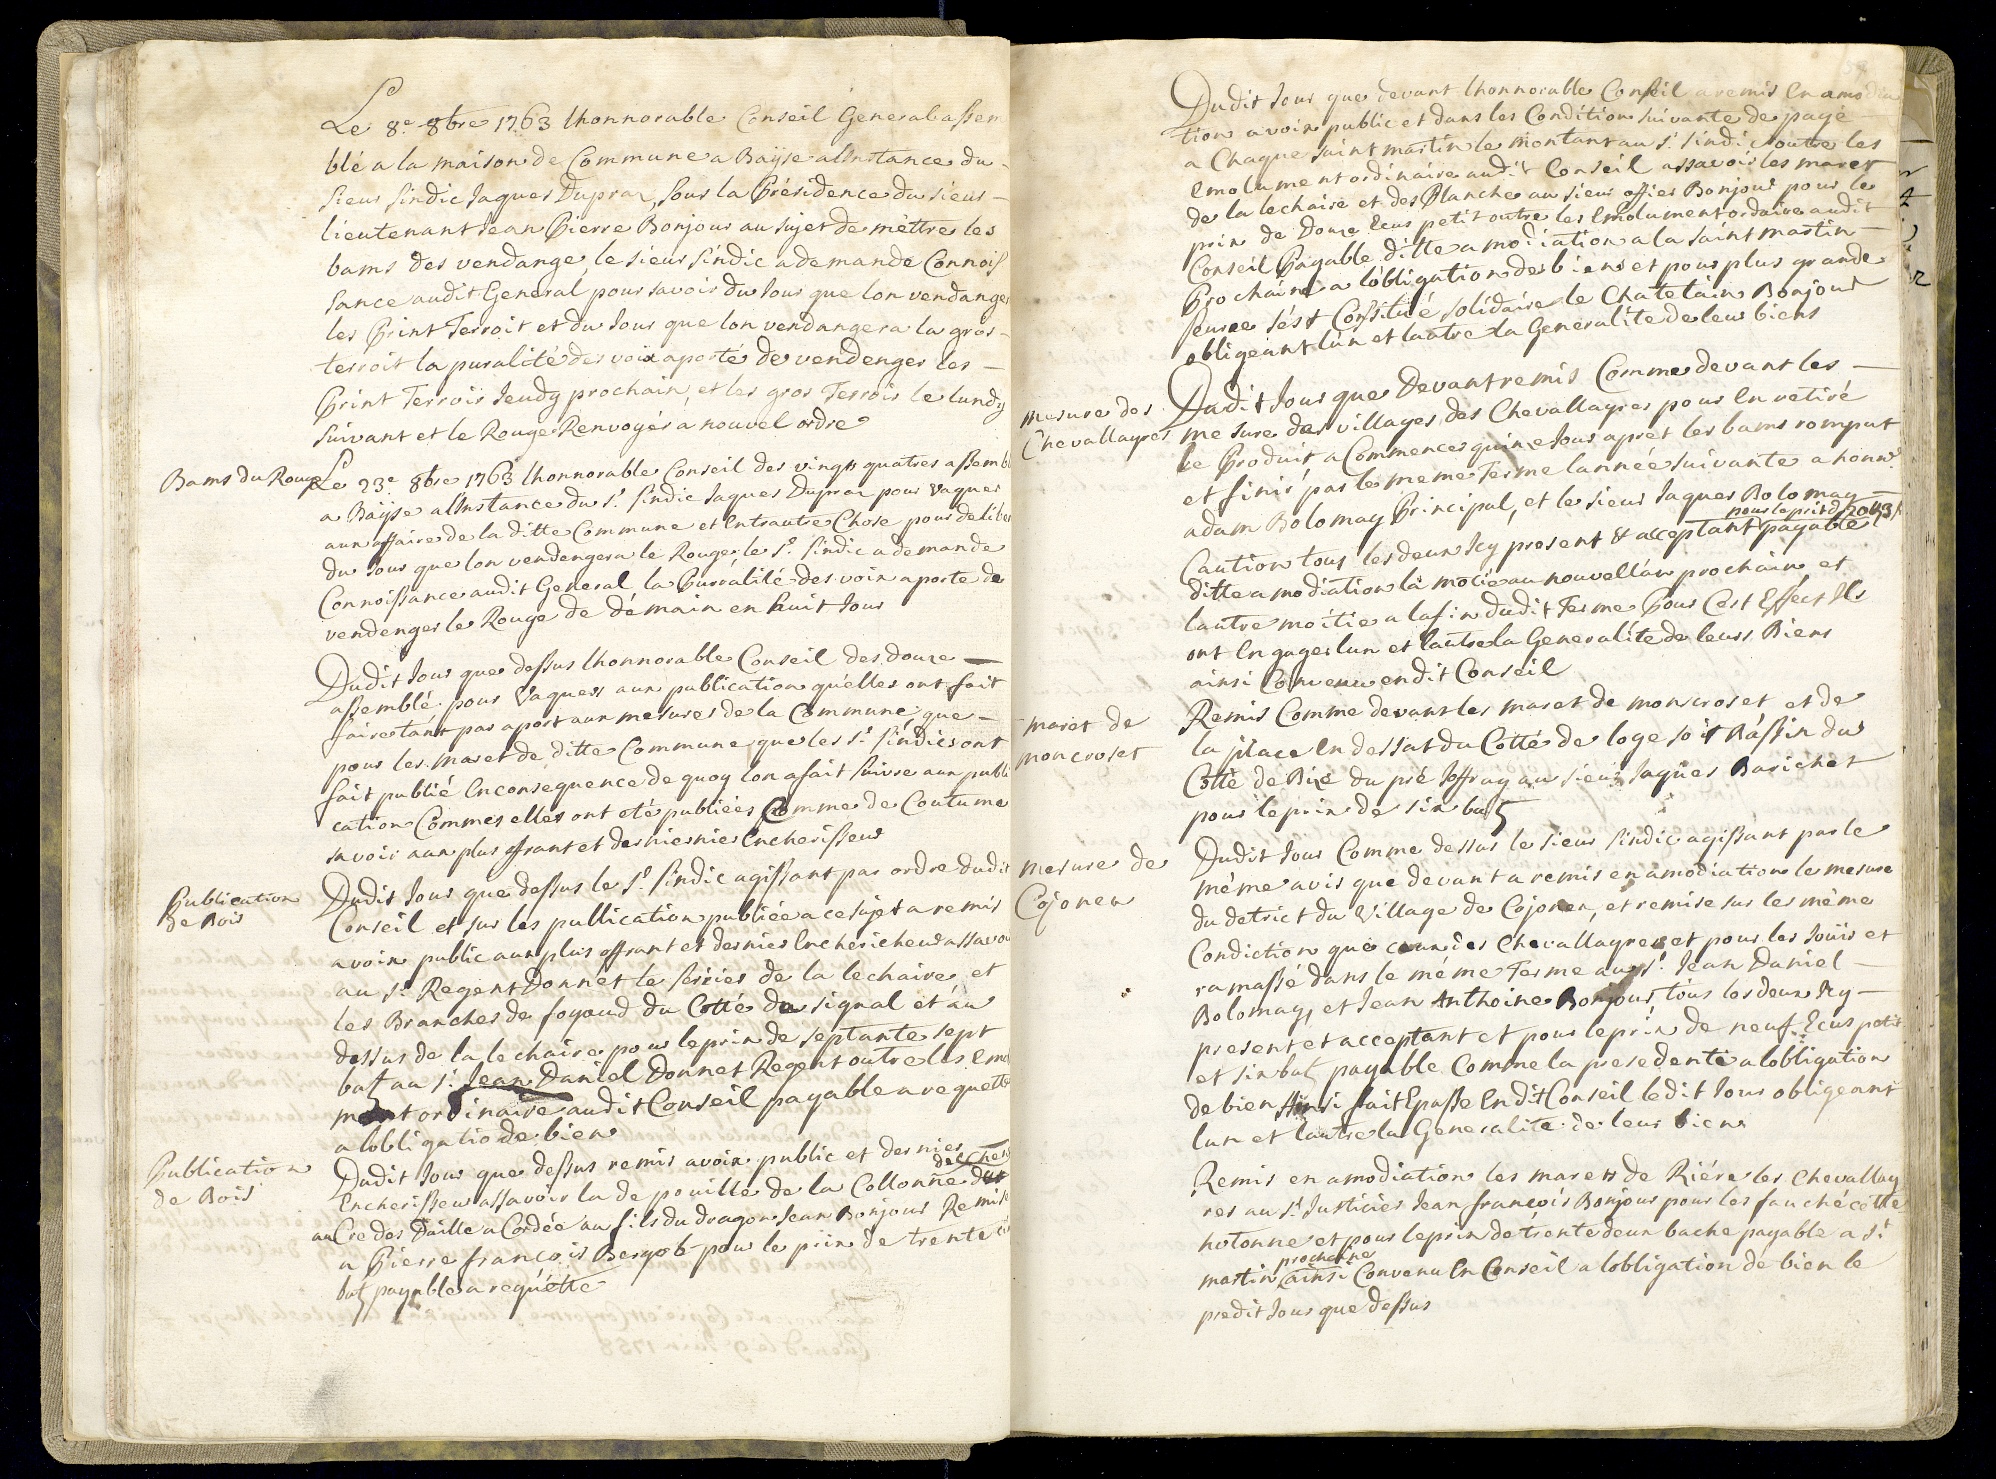 Le 8.e 8bre 1763 lhonnorable Conseil General assem
blé a la maison de Commune a Bayse alInstance du
sieur sindic Jaques Dupraz, sous la Présidence du sieur
lieutenant Jean Pierre Bonjour au sujet de mettre les
bams des vendange, le sieur sindic a demande Connois
sance audit General pour savoir du Jour que lon vendanger
les Print Terroit et du Jour que lon vendangera la gros
terroit la puralité des voix a porté de vendenger les
Print Terroir Jeudy prochain, et les gros Terroir le lundy
suivant et le Rouge Renvoyér a nouvel ordre
Bams du Rouge
Le 23.e 8bre 1763 lhonnorable Conseil des vingts quatres assemb
a Bayse alInstance du s.r sindic Jaques Dupraz pour vaquer
aux affaire de la ditte Commune et Entrautre Chose pour deliber
du Jour que lon vendengera le Rouge, le s.r sindic a demande
Connoissance audit General la Puralité des voix a porte de
vendenger le Rouge de démain en huit Jour
Dudit Jour que dessus lhonnorable Conseil des douze
assemblé pour Vaquer aux publication quelles ont fait
faire tánt par aport aux mesures de la Commune, que
pour les maret de ditte Commune que les s.r sindics ont
fait publié En consequence de quoy lon a fait suivre aux publi
cation Commes elles ont eté publiées Comme de Coutume
savoir aux plus offrant et dernier nier Encherisseur
Publication
de Bois
Dudit Jour que dessus le s.r sindic agissant par ordre dudit
Conseil et sur les publication publiée a ce sujet a remis
a voix public aux plus offrant et dernier Encherisheur assavoir
au s.r Regent Donnet le serisier de la lechaire, et
les Branches de foyard du Cotté du signal et au
dessus de la lechaire pour le prix de septante sept
batz au s.r Jean Daniel Donnet Regent outre les Emol
ment ordinaire audit Conseil payable a requette
a lobligatio de bien
Publication
de Bois
Dudit Jour que dessus remis a voix public et dernier
Encherisseur assavoir la de pouille de la Collonne des Chen
au Cre des Daille a Cordée au fils du dragon Jean Bonjour Remise
a Pierre françois Bergot pour le prix de trente
batz payable a requétte
Dudit Jour que devant lhonnorable Conseil a remis En amodia
tion a voix public et dans les Condition suivante de pagé
a Chaque saint martin le montant au s.r sindic outre les
Emolument ordinaire audit Conseil assavoir les maret
de la lechaire et des Planche au sieur offier Bonjour pour le
prix de Douze Ecus petit outre les Emolument ordaire audit
Conseil Payable ditte amodiation a la saint martin
Prochaine a lobligation des biens et pour plus grande
seuree sést Constitué solidaire le Chatelain Bonjour
obligeant lún et lautre la Generalite de leur biens
mesure des
Chevallayres
Dudit Jour que Devant remis Comme devant les
mesure des villages des Chevallayres pour En retiré
le Produit a Commencer quinze Jour apret les bams romput
et finir par le meme Terme lannée suivante a honn.é
adam Bolomay Principal, et le sieur Jaques Bolomay
Caution tous les deux Icy present et acceptant payable
pour le prix d
ditte amodiation la motie au nouvellán prochain et
lautre moitie a la fin dudit Terme Pour Cest Effect Ils
ont Engager lun et lautre la Generalite de leurs Biens
ainsi Convenu en dit Conseil
maret de
moncroset
Remis Comme devant les maret de moncroset et de
la place En dessat du Cotté de loge soit Bássin du
Cotté de Bize du pré Joffray au sieur Jaques Barichet
pour le prix de six batz
mesure de
Cojonex
Dudit Jour Comme dessus le sieur sindic agissant par le
méme avis que devant a remis en amodiation le mesure
du detrict du Village de Cojonex, et remise sur les méme
Condiction que ceux des Chevallayres et pour les Jouïr et
ramassé dans le méme Terme au s.r Jean Daniel
Bolomay, et Jean Anthoine Bonjour, tous les deux Icy
present et acceptant et pour le prix de neuf Ecus petit
et six batz payable Comme la presedente a lobligation
de bien Ainsi fait Epasse En dit Conseil ledit Jour obligeant
lun et lautre la Generalite de leur bien
Remis en amodiation les marets de Riére les Chevallay
res au s.r Justicier Jean françois Bonjour pour les fauché cette
hotonne et pour le prix de trente deux bache payable a S.t
martin prochaine ainsi Convenu En Conseil a lobligation de bien le
predit Jour que dessus